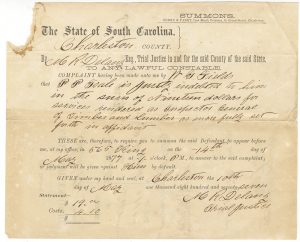 SUMMONS.
The State of South Carolina,
Charleston COUNTY.
By M R Delany Esq., Trial Justice in and for the said County of the said State.
TO ANY LAWFUL CONSTABLE:
COMPLAINT having been made unto me by
that P P
in the sum of Nineteen dollars for
services rendered as Inspector General
of Timber and Lumber as more fully set
forth in affidavit
THESE ARE, therefore, to require you to summon the said Defendant, to appear before
me, at my office, in King on the 14th day of
May 1877 at o'clock, to answer to the said complaint,
or judgment will be given against him by default.
GIVEN under my hand and seal, at Charleston the 10th
day of May one thousand eight hundred and seventy seven
M R Delany
Trial Justice
Statement—
$
Costs,